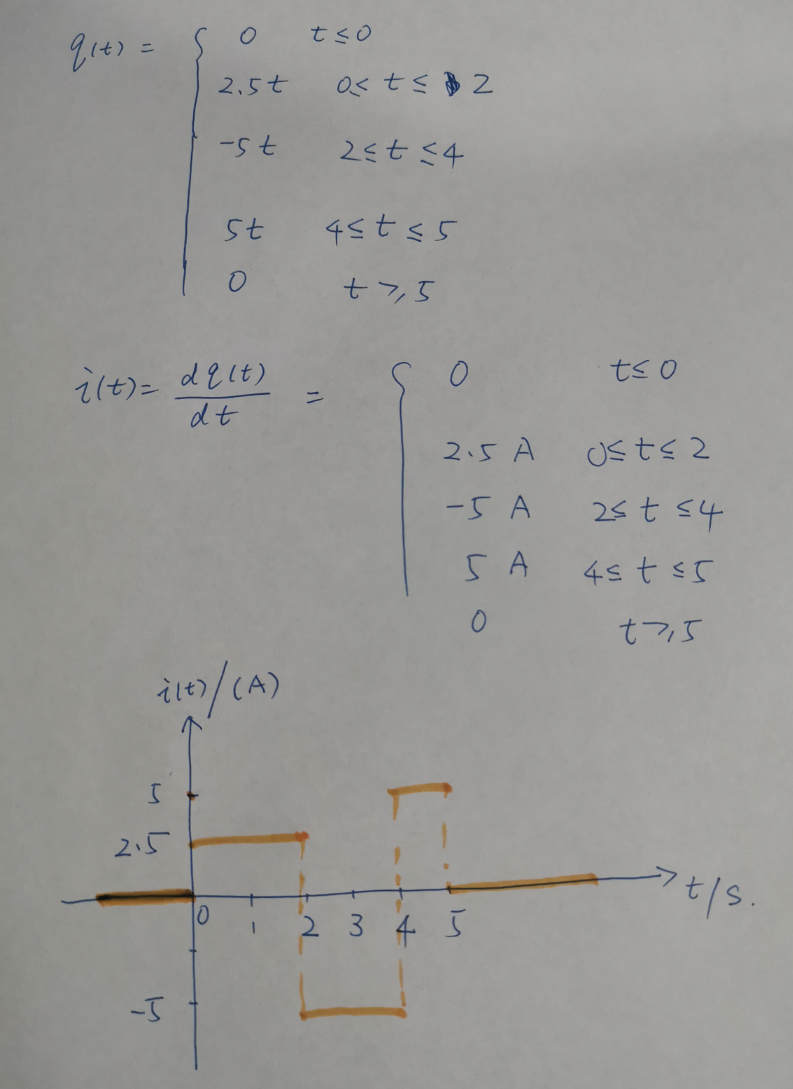 q(t) = { 0 t ≤ 0
2.5t 0 < t ≤ 2
-5t 2 ≤ t ≤ 4
5t 4 ≤ t ≤ 5
0 t ≥ 5
i(t) = dq(t)/dt = { 0 t ≤ 0
2.5 A 0 ≤ t ≤ 2
-5 A 2 ≤ t ≤ 4
5 A 4 ≤ t ≤ 5
0 t ≥ 5
i(t)/(A)
5
2.5
t/s.
0 1 2 3 4 5
-5